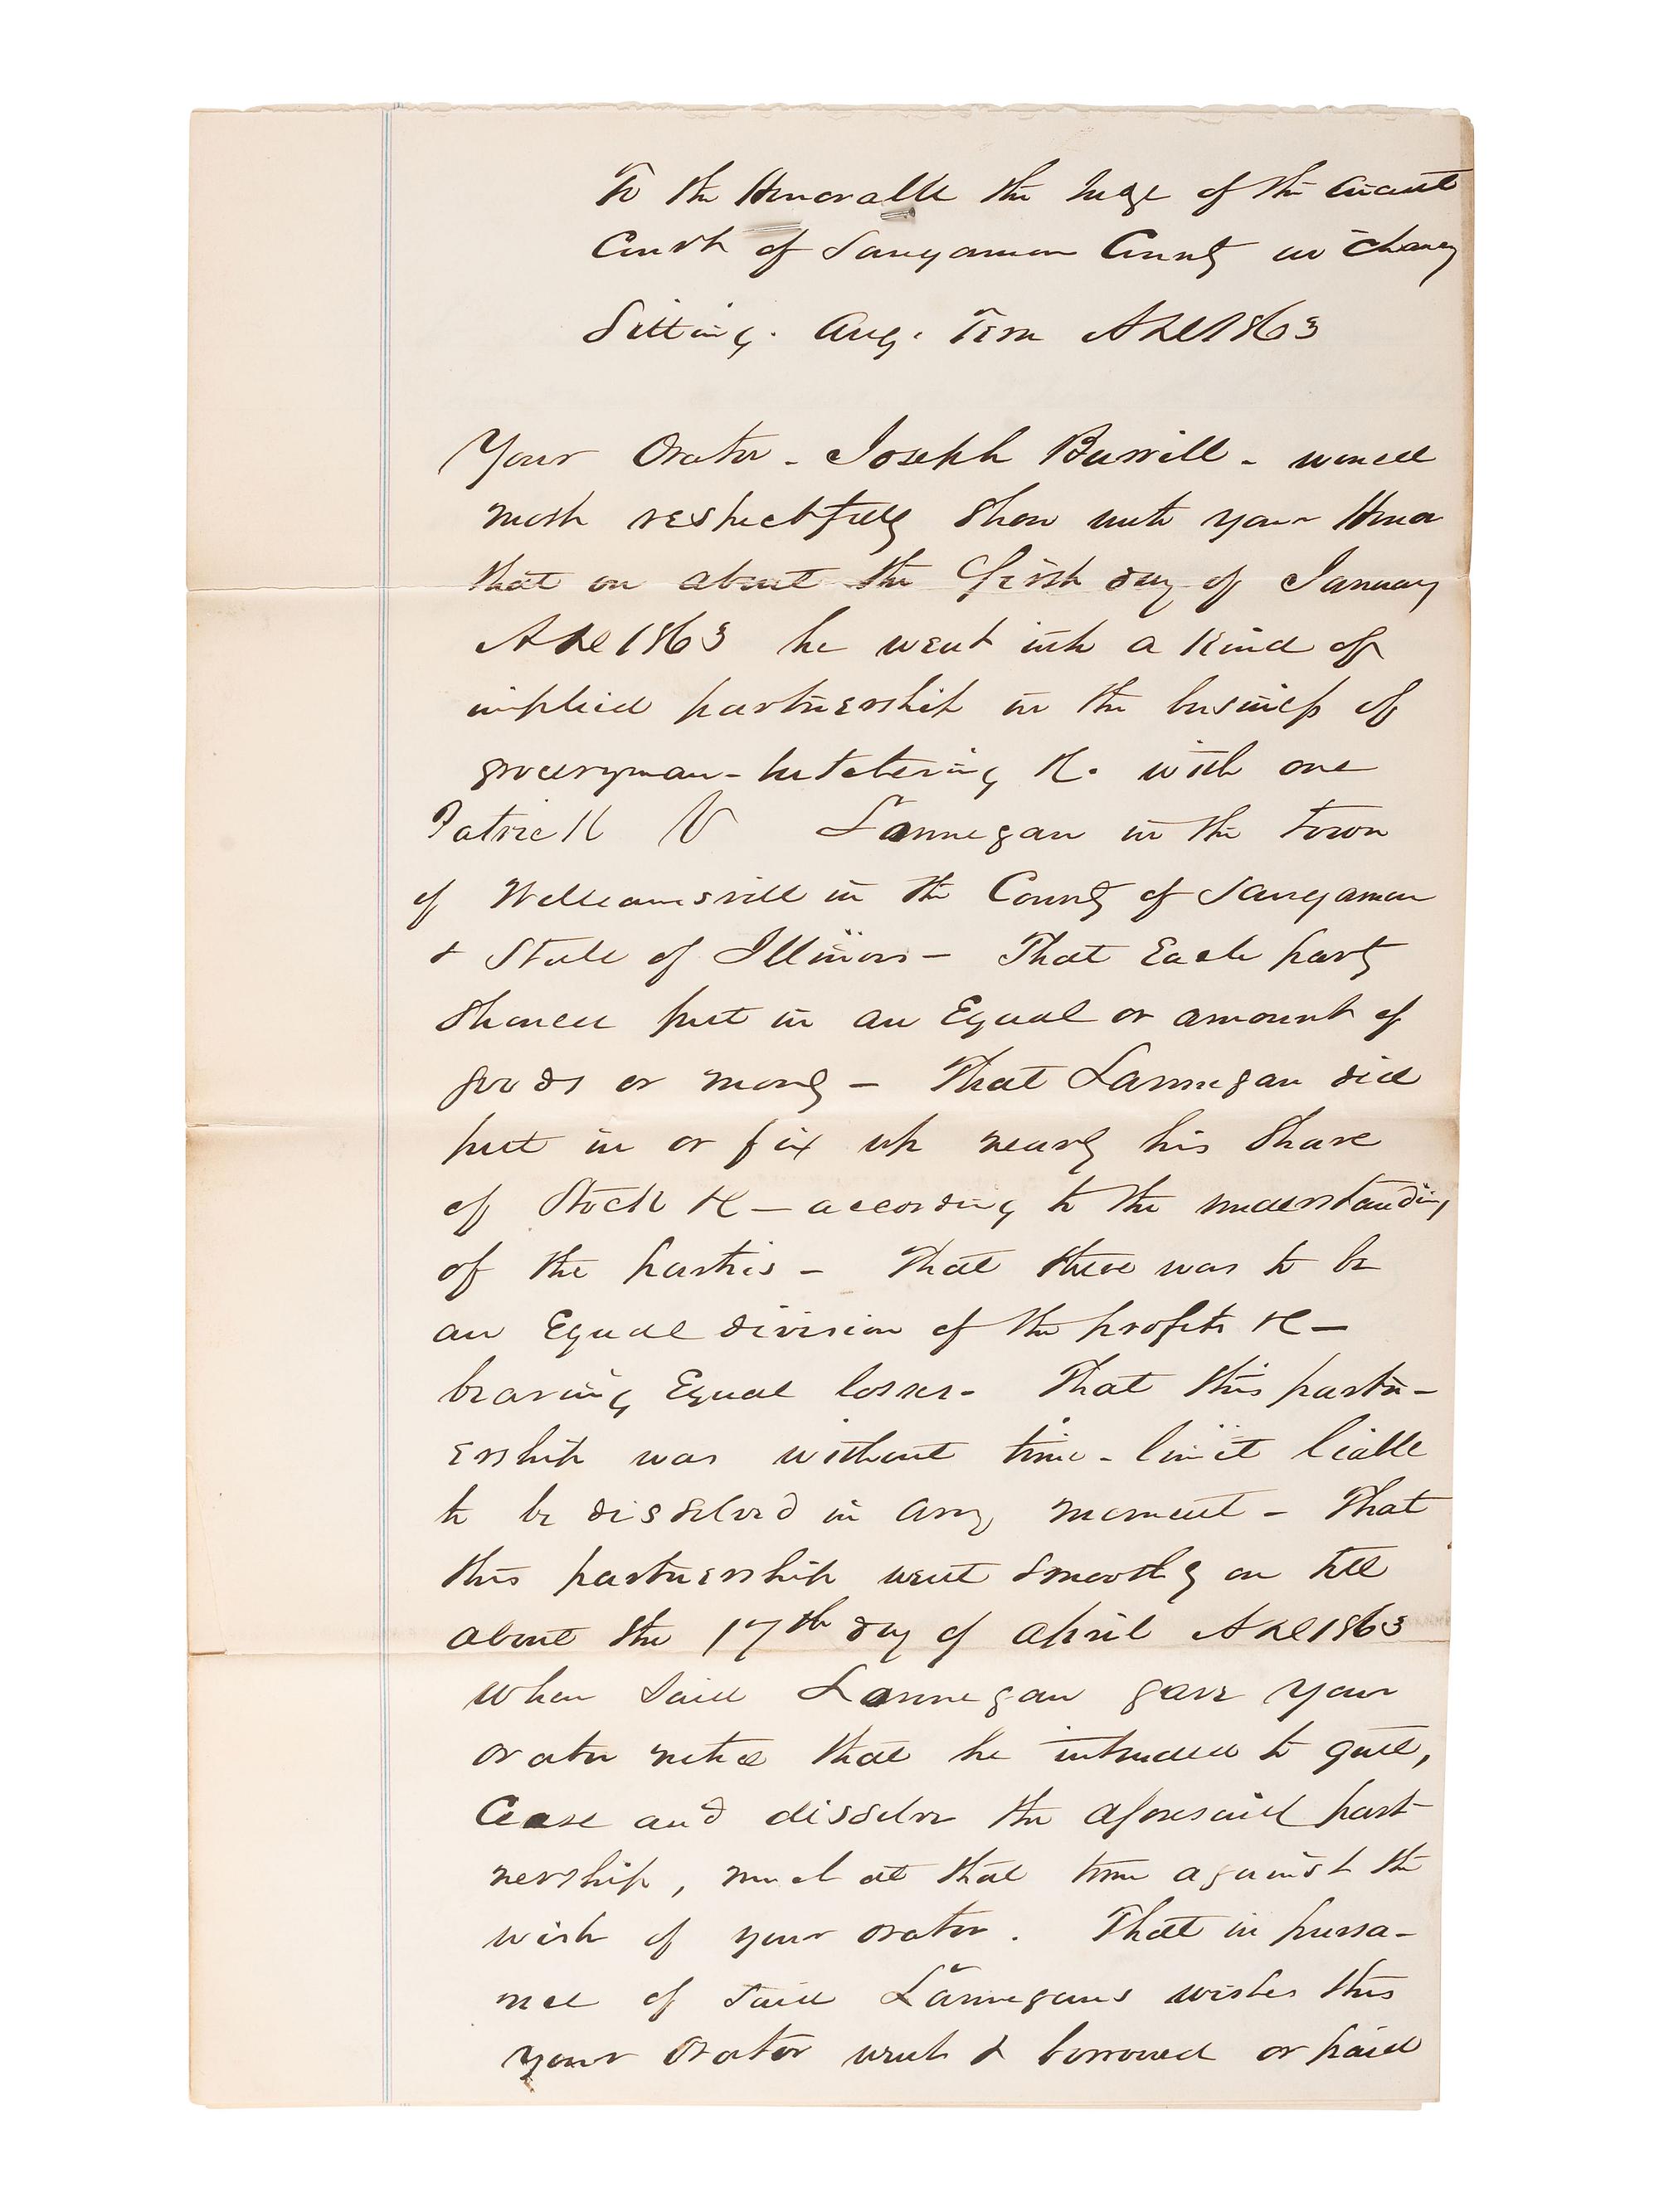 To the Honorable the Judge of the Circuit
Court of Sangamon County in Chancy
Sitting. Aug. Term AD 1863
Your Orator - Joseph Burrill - would
most respectfully show unto your Honor
that on about the first day of January
AD 1863 he went into a kind of
implied partnership in the business of
groceryman - butchering &c. with one
Patrick V Lannegan in the town
of Williamsvill in the County of Sangamon
& State of Illinois - That Each party
should put in an Equal or amount of
goods or money - That Lannegan did
put in or fix up nearly his share
of Stock &c - according to the understanding
of the parties - That there was to be
an Equal division of the profits &c -
bearing Equal losses - That this partn-
ership was without time - limit liable
to be dissolved in any moment - That
this partnership went smoothly on till
about the 17th day of April AD 1863
when said Lannegan gave your
orator notice that he intended to quit,
Cease and dissolve the aforesaid part-
nership, much at that time against the
wish of your orator. That in pursa-
nce of said Lannegans wishes this
your Orator went & borrowed or paid